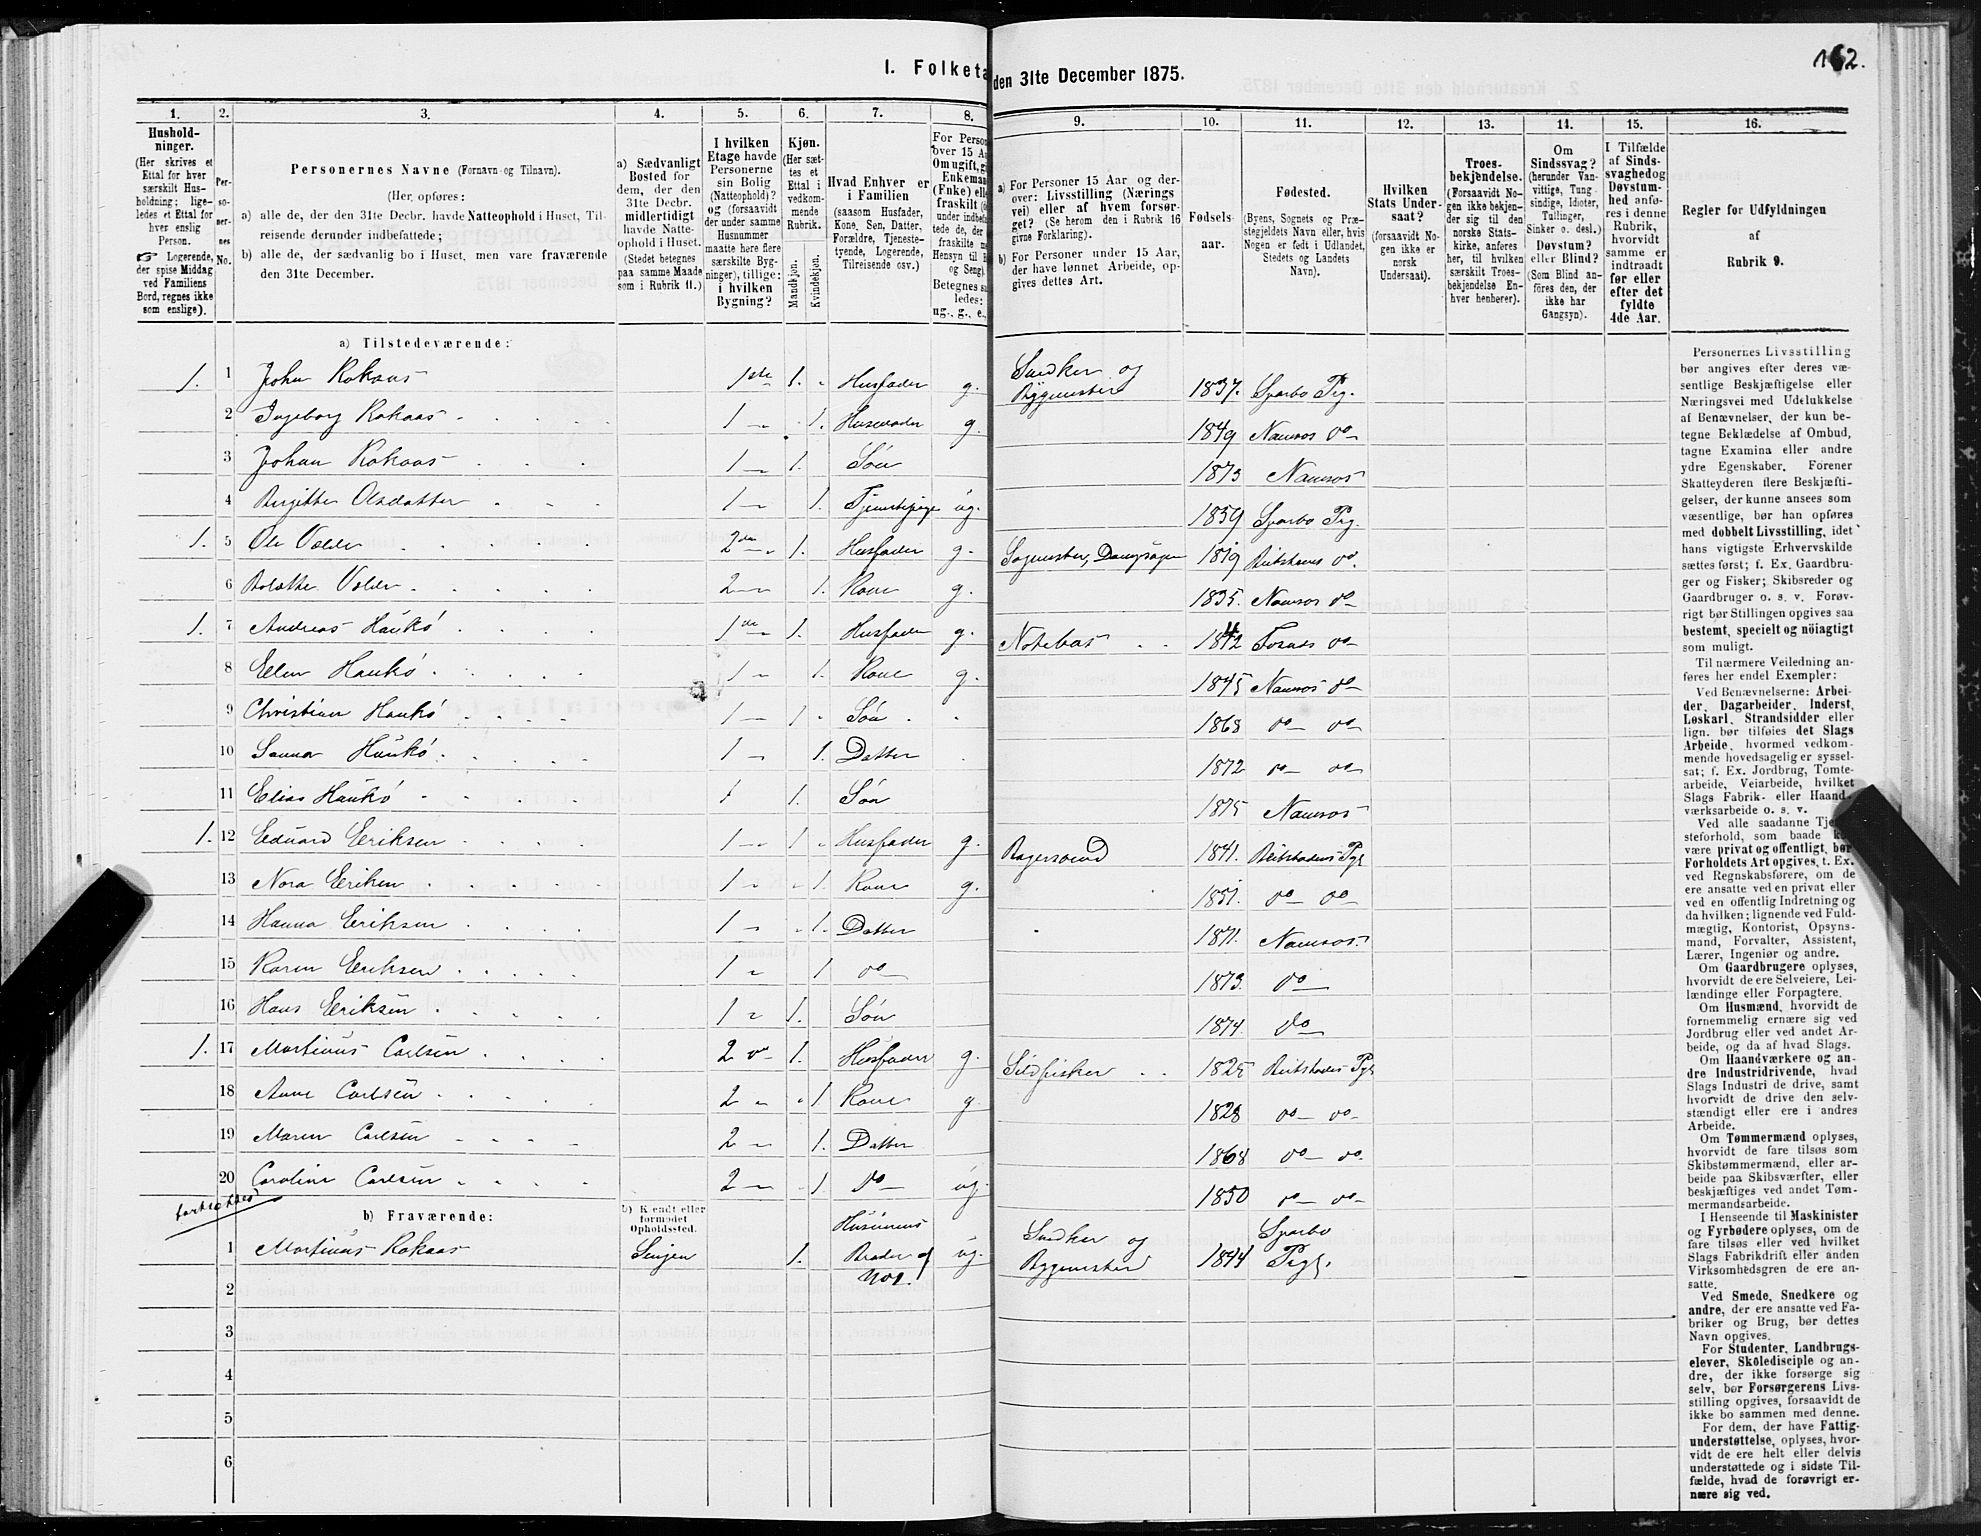 I. Folketæ
den 31te December 1875.
162.
1. 2. 3. 4. 5. 6. 7. 8. 9. 10. 11. 12. 13. 14. 15. 16.
Hushold-
ninger.
(Her skrives et
Ettal for hver
særskilt Hus-
holdning; lige-
ledes et Ettal for
hver enslig
Person.
☞ Logerende,
der spise Middag
ved Familiens
Bord, regnes ikke
som enslige).
Per-
so-
ner-
nes
No.
Personernes Navne (Fornavn og Tilnavn).
(Her opføres:
a) alle de, der den 31te Decbr. havde Natteophold i Huset, Til-
reisende derunder indbefattede;
b) alle de, der sædvanlig bo i Huset, men vare fraværende
den 31te December.
a) Sædvanligt
Bosted for
dem, der den
31te Decbr.
midlertidigt
havde Natte-
ophold i Huset.
(Stedet betegnes
paa samme Maade
som i Rubrik 11.)
I hvilken
Etage havde
Personerne
sin Bolig
(Natteophold)?
og (forsaavidt
der under samme
Husnummer
maatte here flere
særskilte Byg-
ninger), tillige:
i hvilken
Bygning?
Kjøn.
(Her sæt-
tes et
Ettal i
vedkom-
mende
Rubrik.
Mandkjøn.
Kvindekjøn.
Hvad Enhver er
i Familien
(saasom Husfader,
Kone, Søn, Datter,
Forældre, Tjeneste-
tyende, Logerende,
Tilreisende osv.)
For Person
over 15 A
Om ugift, gi
Enkeman
(Fnke) elle
fraskilt
under indbef
tede de, der
fraskilte
Hensyn til
og Seng).
Betegnes
ledes:
ug., g., e.,
a) For Personer 15 Aar og der-
over: Livsstilling (Nærings
vei) eller af hvem forsør-
get? (Se herom den i Rubrik 16
givne Forklaring).
b) For Personer under 15 Aar,
der have lønnet Arbeide, op-
gives dettes Art.
Fødsels-
aar.
Fødested.
(Byens, Sognets og Præ-
stegjeldets Navn eller, hvis
Nogen er født i Udlandet,
Stedets og Landets
Navn).
Hvilken
Stats Under-
saat?
(forsaavidt No-
gen ikke er
norsk
Undersaat).
Troes-
bekjendelse.
(Forsaavidt No-
gen ikke bekjen-
der sig til den
norske Stats-
kirke, anføres
her, til hvilken
særskilt Troes-
bekjendelse En-
hver henhører).
Om
Sindssvag?
(herunder Van-
vittige, Tung
sindige, Idioter,
Tullinger,
Sinker o. desl.)
Døvstum?
eller Blind?
(Som Blind an-
føres den, der
ikke har
Gangsyn).
I Tilfælde
af Sinds-
svaghed og
Døvstum-
hed anfø-
res i denne
Rubrik,
hvorvidt
samme er
indtraadt
før eller
efter det
fyldte
4de Aar.
Regler før Udfyldningen
af
Rubrik 9.
a) Tilstedeværende:
1. 1 John Rokaas 1ste 1. Husfader g. Snedker og Bygmester 1837. Sparbo Prg.
2 Ingeborg Rokaas 1 1. Husmoder g. 1849 Namsos do
3 Johan Rokaas 1 1. Søn 1873 Namsos
4 Birgitte Olsdatter 1 1. Tjenestepige ug. 1859 Sparbo Prg.
1. 5 Ole Valder 2den 1. Husfader g. Sagmester, Dampsagen 1819 Beitstadens do.
6 Valder 2 1. Kone g. 1835. Namsos do
1. 7 Andreas Haukø 1 1. Husfader g. Notebas 1842 Fosnæs do
8 Ellen Haukø 1 1. Kone g. 1845 Namsos do
9 Christian Haukø 1 1 Søn 1868 do do
10 Sanna Haukø 1 1. Datter 1872 do do
11 Elias Haukø 1 1. Søn 1875 Namsos
1. 12 Eduard Eriksen 1 1 Husfader g. Bagersvend 1841. Beitstadens Pgl
13 Nora Eriksen 1 1. Kone g. 1851. do do
14 Hanna Eriksen 1 1. Datter 1871. Namsos.
15 Karen Eriksen 1 1 do 1873. do
16 Hans Eriksen 1 1. Søn 1874. do
1. 17 Martinus Carlsen 2 do 1. Husfader g. Sildfisker 1825 Beitstadens Pgl
18 Anne Carlsen 2 1 Kone g. 1828 do do
19 Maren Carlsen 2 1. Datter 1868 do do.
20 Caroline Carlsen 2 1 do ug. 1850 do do
fortsættes
b) Fraværende:
b) Kendt eller
formodet
Opholdssted.
1 Martinus Rokaas Senjen 1. Husierens Broder af No 1. ug. Snedker og Bygmester 1844 Sparbo Prgl.
2
3
4
5
6
Personernes Livsstilling
bør angives efter deres væ-
sentlige Beskjæftigelse eller
Næringsvei med Udelukkelse
af Benævnelser, der kun be-
tegne Beklædelse af Ombud,
tagne Examina eller andre
ydre Egenskaber. Forener
Skatteyderen flere Beskjæfti-
gelser, der kunne ansees som
væsentlige, bør han opføres
med dobbelt Livsstilling, idet
hans vigtigste Erhvervskilde
sættes først; f. Ex. Gaardbru-
ger og Fisker; Skibsreder og
Gaardbruger o. s. v. Forøv-
rigt bør Stillingen opgives saa
bestemt, specielt og nöiagtigt
som muligt.
Til nærmere Veiledning an-
føres her endel Exempler:
Ved Benævnelserne: Arbei-
der, Dagarbeider, Inderst,
Løskarl, Strandsidder eller
lign. bør tilføies det Slags
Arbeide, hvormed vedkom-
mende hovedsagelig er syssel-
sat; f. Ex. Jordbrug, Tomte-
arbeide, Veiarbeide, hvilket
Slags Fabrik- eller Haand-
værksarbeide o. s. v.
Ved alle saadanne Tje
steforhold, som baade
være privat og offentligt, bør
Forholdets Art opgives, t. Ex.
ved Regnskabsførere, om de
ere ansatte ved en privat eller
ved en offentlig Indretning og
da hvilken; lignende ved Fuld-
mægtig, Kontorist, Opsyns-
mand, Forvalter, Assistent,
Lærer, Ingeniør og andre.
Om Gaardbrugere oplyses,
hvorvidt de ere Selveiere, Lei-
lændinge eller Forpagtere.
Om Husmænd, hvorvidt de
fornemmelig ernære sig ved
Jordbrug eller ved andet Ar-
beide, og da af hvad Slags.
Om Haandværkere og an-
dre Industridrivende, hvad
Slags Industri de drive, samt
hvorvidt de drive den selv-
stændigt eller ere i andres
Arbeide.
Om Tømmermænd oplyses,
hvorvidt de fare tilsøs som
Skibstømmermænd, eller ar-
beide paa Skibsværfter, eller
beskjæftiges ved andet Tøm-
mermandsarbeide.
I Henseende til Maskinister
og Fyrbødere oplyses, om de
fare tilsøs eller ved hvilket
Slags Fabrikdrift eller anden
Virksomhedsgren de ere an-
satte.
Ved Smede, Snedkere og
andre, der ere ansatte ved Fa-
briker og Brug, bør dettes
Navn opgives.
For Studenter, Landbrugs-
elever, Skoledisciple og an-
dre, der ikke forsørge sig
selv, bør Forsørgerens Livs-
stilling opgives, forsaavidt de
ikke bo sammen med denne.
For dem, der have Fattig-
understøttelse, oplyses, hvor-
vidt de ere helt eller delvis
understøttede og i sidste Til-
fælde, hvad de forøvrigt er-
nære sig ved.